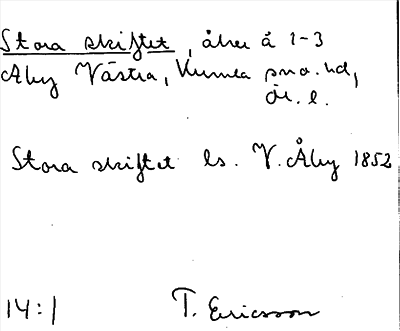 Stora skiftet, åker å 1-3
Åby Västra, Kumla sn o. hd,
Ör. l.
Stora skiftet ls. V. Åby 1852
14:1
T. Ericsson